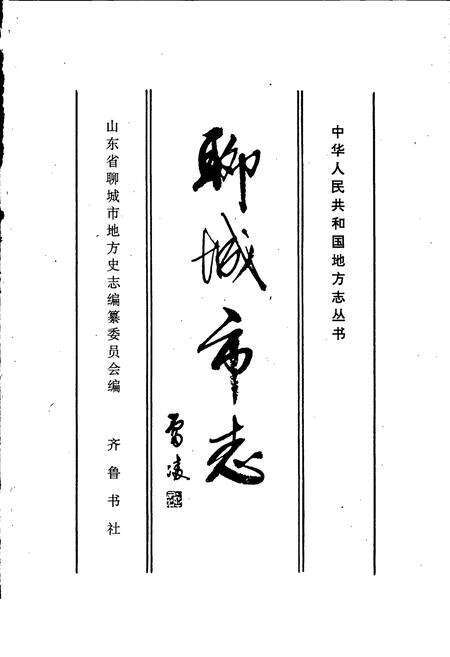 中华人民共和国地方志丛书
聊城市志
山东省聊城市地方史志编纂委员会编
齐鲁书社